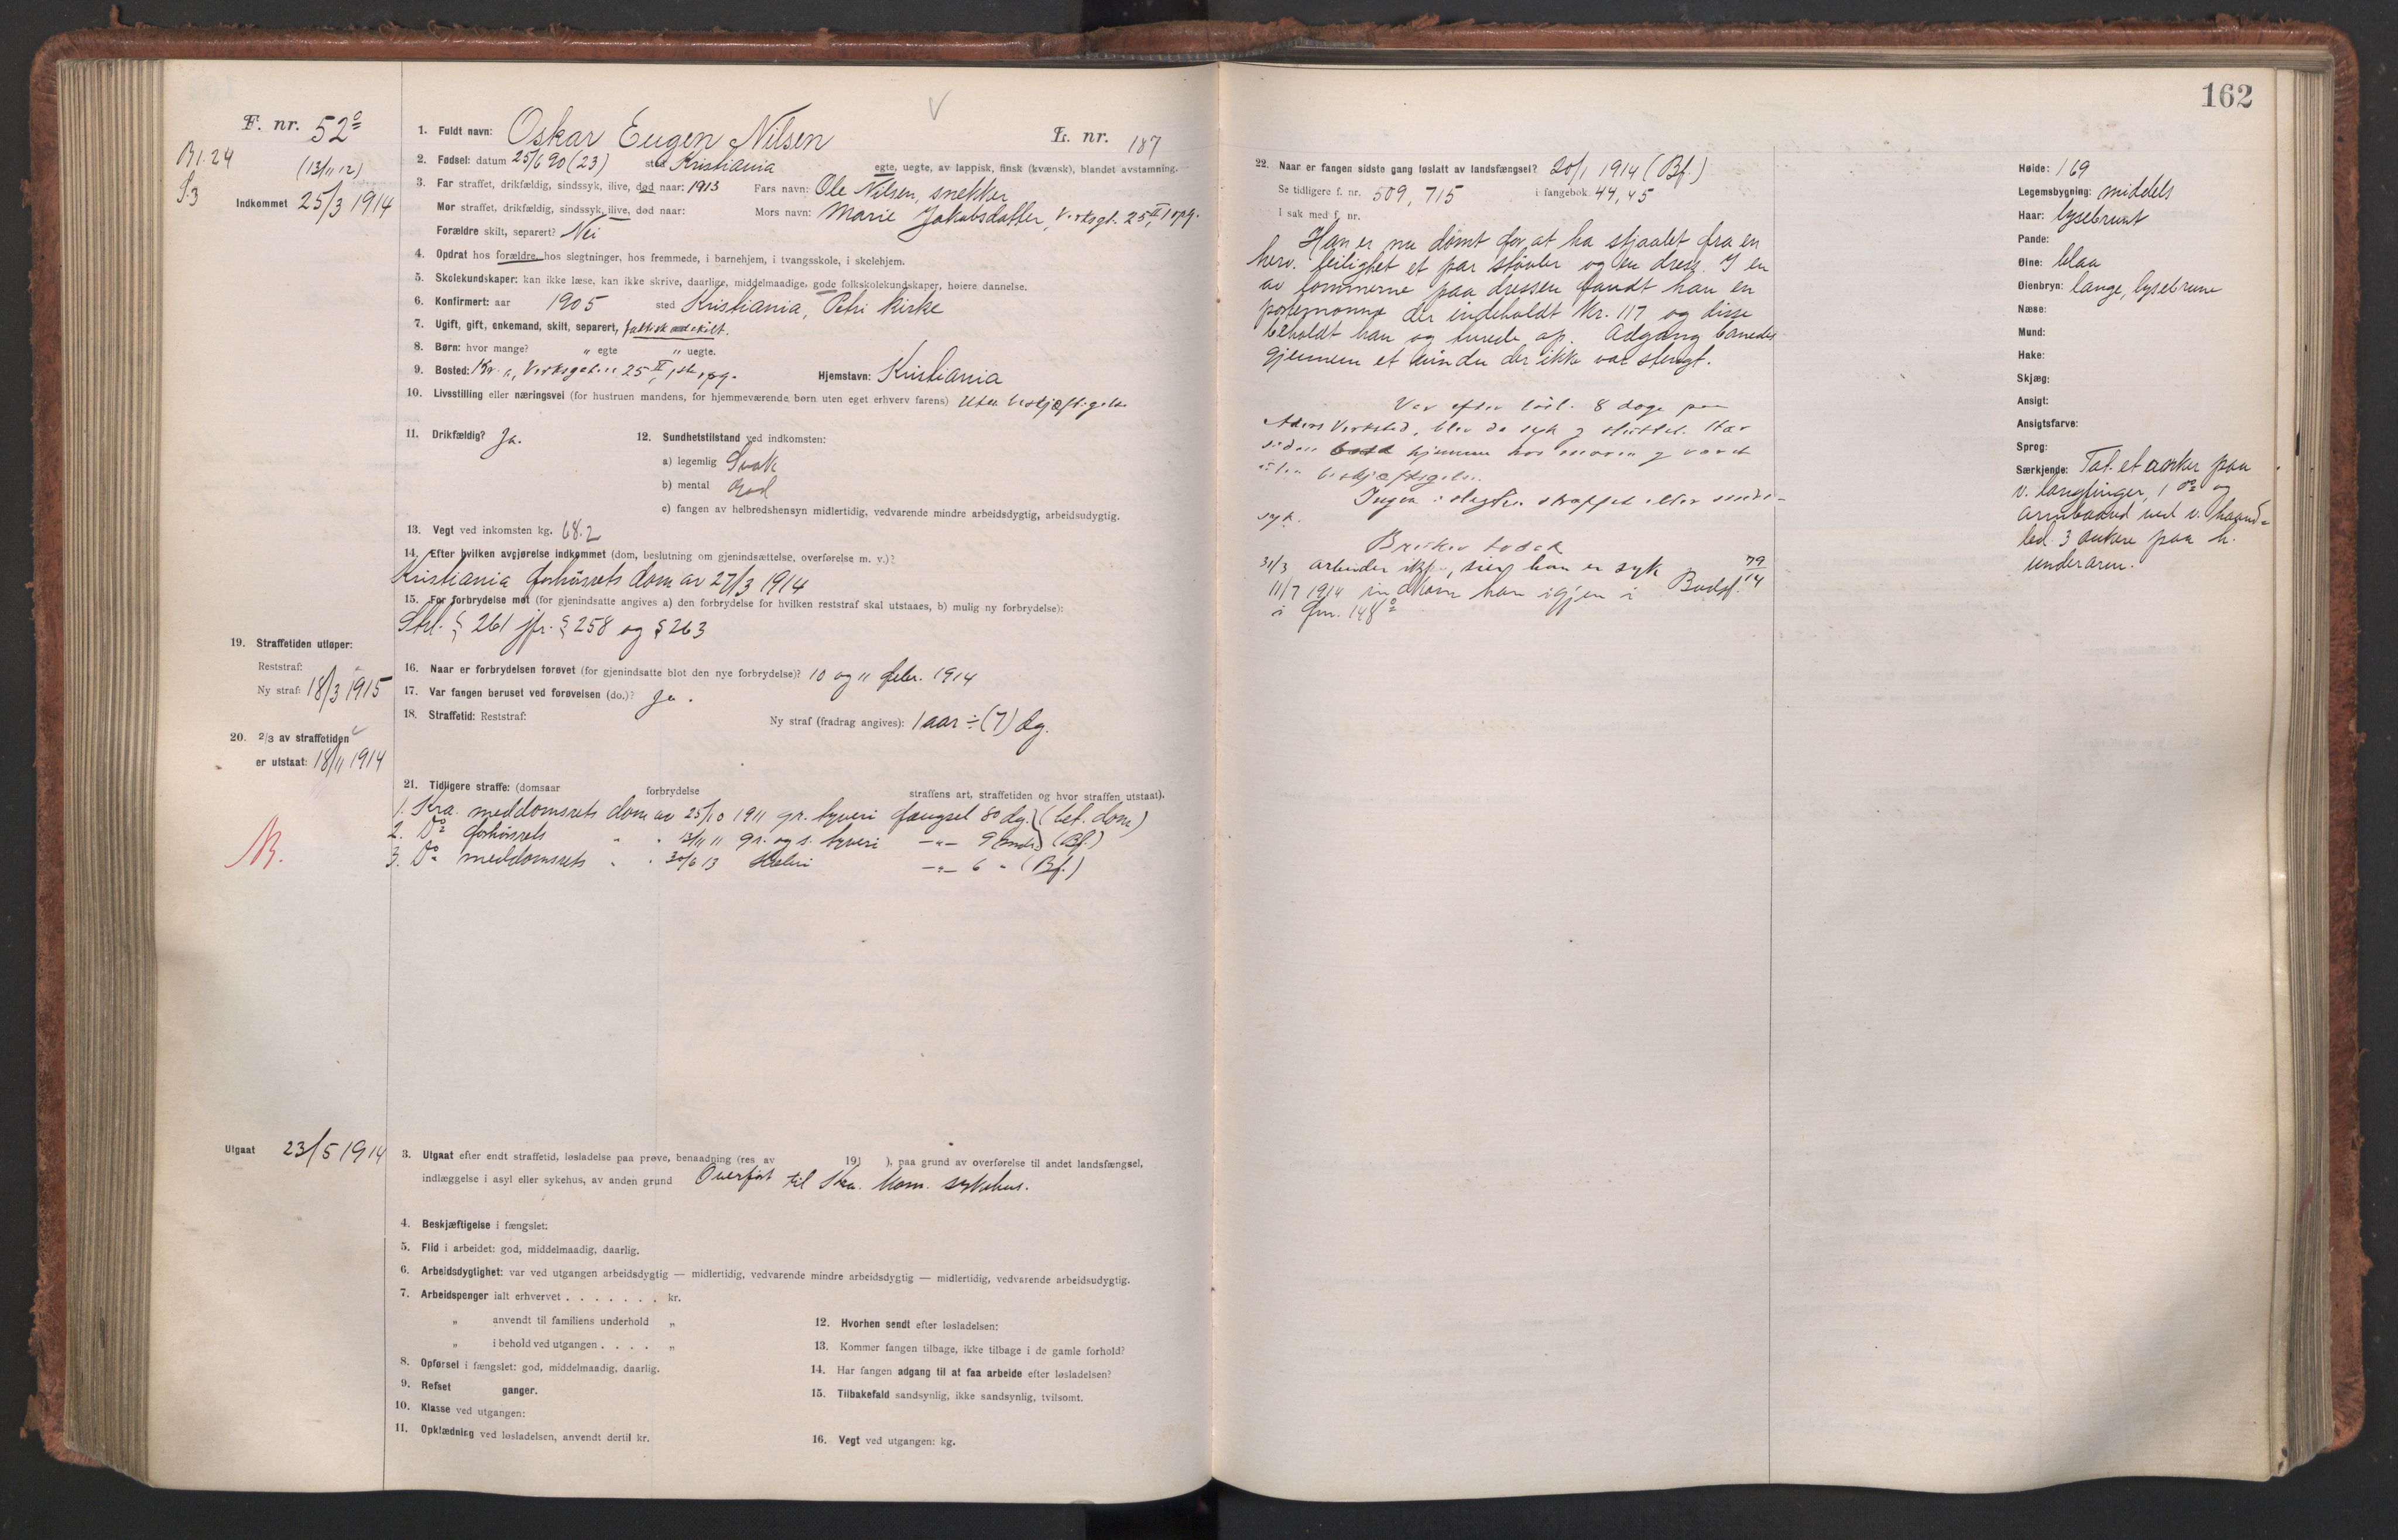 162
F. nr. 52º
B1.24
(13/11 12)
S.3
Indkommet 25/3 1914
1. Fuldt navn: Oskar Eugen Nilsen
L. nr. 187
2. Fødsel: datum 25/6 90 (23) sted Kristiania egte, uegte, av lappisk, finsk (kvænsk), blandet avstamning.
3. Far straffet, drikfældig, sindssyk, ilive, død naar: 1913 Fars navn: Ole Nilsen, snekker
Mor straffet, drikfældig, sindssyk, ilive, død naar: Mors navn: Marie Jakobsdatter, Verksgt. 25 II 1 opg.
Forældre skilt, separert? Nei
4. Opdrat hos forældre, hos slegtninger, hos fremmede, i barnehjem, i tvangsskole, i skolehjem.
5. Skolekundskaper: kan ikke læse, kan ikke skrive, daarlige, middelmaadige, gode folkskolekundskaper, høiere dannelse.
6. Konfirmert: aar 1905 sted Kristiania, Petri kirke
7. Ugift, gift, enkemand, skilt, separert, faktisk adskilt.
8. Børn: hvor mange? „ egte „ uegte.
9. Bosted: Kr.a, Verksgaten 25 II, 1ste opg. Hjemstavn: Kristiania
10. Livsstilling eller næringsvei (for hustruen mandens, for hjemmeværende børn uten eget erhverv farens) Uten beskjæftigelse
11. Drikfældig? Ja.
12. Sundhetstilstand ved indkomsten:
a) legemlig Svak
b) mental God
c) fangen av helbredshensyn midlertidig, vedvarende mindre arbeidsdygtig, arbeidsudygtig.
13. Vegt ved inkomsten kg. 68.2
14. Efter hvilken avgjørelse indkommet (dom, beslutning om gjenindsættelse, overførelse m. v.)?
Kristiania forhörsrets dom av 27/3 1914
15. For forbrydelse mot (for gjenindsatte angives a) den forbrydelse for hvilken reststraf skal utstaaes, b) mulig ny forbrydelse):
Strl. § 261 jfr. § 258 og § 263
19. Straffetiden utløper:
Reststraf: „
Ny straf: 18/3 1915
16. Naar er forbrydelsen forøvet (for gjenindsatte blot den nye forbrydelse)? 10 og 11 febr. 1914
17. Var fangen beruset ved forøvelsen (do.)? Ja.
18. Straffetid: Reststraf: Ny straf (fradrag angives): 1 aar ÷ (7) dg.
20. 2/3 av straffetiden
er utstaat: 18/11 1914
21. Tidligere straffe: (domsaar forbrydelse straffens art, straffetiden og hvor straffen utstaat).
1. Kra. meddomsrets dom av 25/10 1911 gr. tyveri fængsel 80 dg. (bet. dom)
2. Dº forhörsrets " " 13/11 11 gr. og s. tyveri —"— 9 mdr. (Bf.)
3. Dº meddomsrets " " 30/6 13 Hæleri —"— 6 " (Bf.)
Utgaat 23/5 1914
3. Utgaat efter endt straffetid, løsladelse paa prøve, benaadning (res. av 191 ), paa grund av overførelse til andet landsfængsel,
indlæggelse i asyl eller sykehus, av anden grund Overført til Kra. kom. sykehus.
4. Beskjæftigelse i fængslet:
5. Flid i arbeidet: god, middelmaadig, daarlig.
6. Arbeidsdygtighet: var ved utgangen arbeidsdygtig — midlertidig, vedvarende mindre arbeidsdygtig — midlertidig, vedvarende arbeidsudygtig.
7. Arbeidspenger ialt erhvervet . . . . . . . kr.
„ anvendt til familiens underhold „
„ i behold ved utgangen . . . . „
8. Opførsel i fængslet: god, middelmaadig, daarlig.
9. Refset ganger.
10. Klasse ved utgangen:
11. Opklædning ved løsladelsen, anvendt dertil kr.
12. Hvorhen sendt efter løsladelsen:
13. Kommer fangen tilbage, ikke tilbage i de gamle forhold?
14. Har fangen adgang til at faa arbeide efter løsladelsen?
15. Tilbakefald sandsynlig, ikke sandsynlig, tvilsomt.
16. Vegt ved utgangen: kg.
22. Naar er fangen sidste gang løslatt av landsfængsel? 20/1 1914 (Bf.)
Se tidligere f. nr. 509, 715 i fangebok 44, 45
I sak med f. nr.
Han er nu dömt for at ha stjaalet fra en
herv. leilighet et par støvler og en dress. I en
av lommerne paa dressen fandt han en
portemonnæ der indeholdt kr. 117 og disse
beholdt han og turede op. Adgang banedes
gjennem et vindu der ikke var stengt.
Var efter løsl. 8 dage paa
Akers Verksted, blev da syk og sluttet. Har
siden hjemme hos moren og været
uten beskjæftigelse.
Ingen i slegten straffet eller sinds-
syk.
Bruker tobak
31/3 arbeider ikke, sier han er syk 79/14
11/7 1914 indkom han igjen i Bodsf.
i fnr. 148º
Høide: 169
Legemsbygning: middels
Haar: lysebrunt
Pande:
Øine: blaa
Øienbryn: lange, lysebrune
Næse:
Mund:
Hake:
Skjæg:
Ansigt:
Ansigtsfarve:
Sprog:
Særkjende: Tat. et anker paa
v. langfinger, 1 dº og
armbaand ved v. haand-
led. 3 ankere paa h.
underarm.